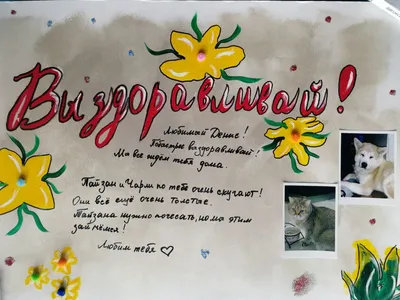 Выздоравливай!
Любимый Денис!
Побыстрее выздоравливай!
Мы все ждём тебя дома.
Пайзан и Чарли по тебе очень скучают!
Они всё ещё очень толстые.
Пайзана нужно почесать, но мы этим
займёмся!
Любим тебя